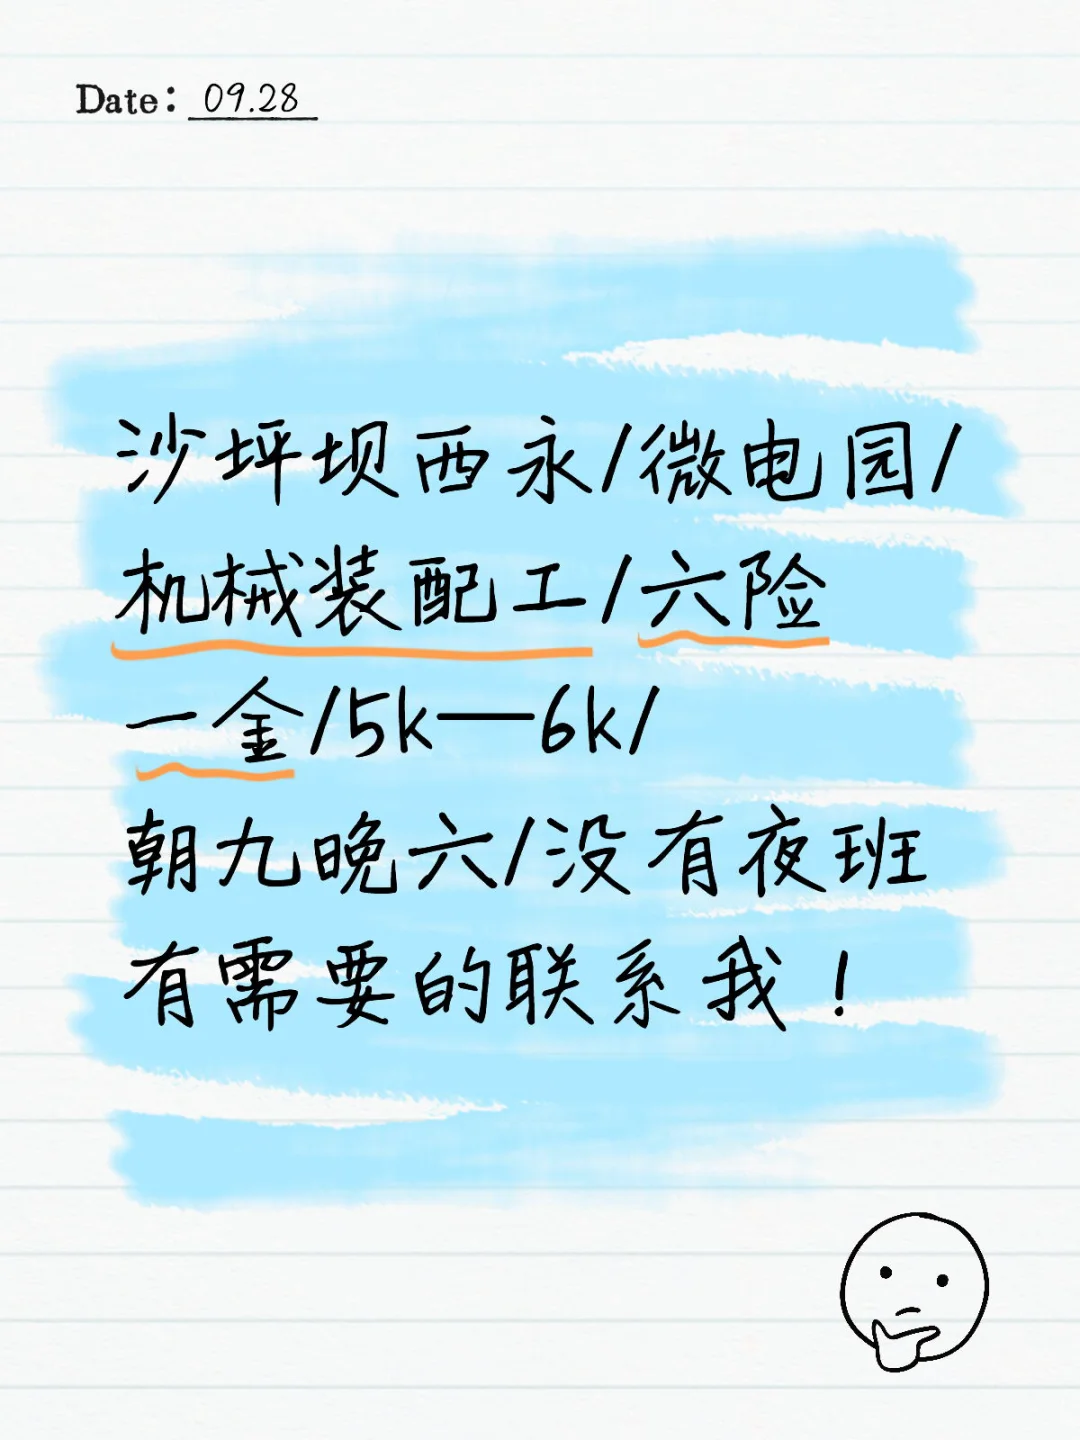 Date: 09.28
沙坪坝西永/微电园/
机械装配工/六险
一金/5k—6k/
朝九晚六/没有夜班
有需要的联系我！